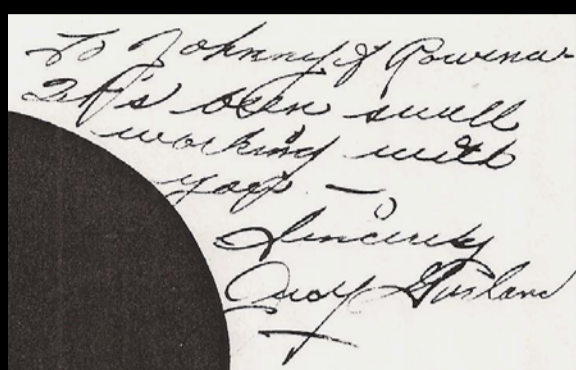 To Johnny & Rowena-
It's been swell
working with
you -
Sincerely
Judy Garland